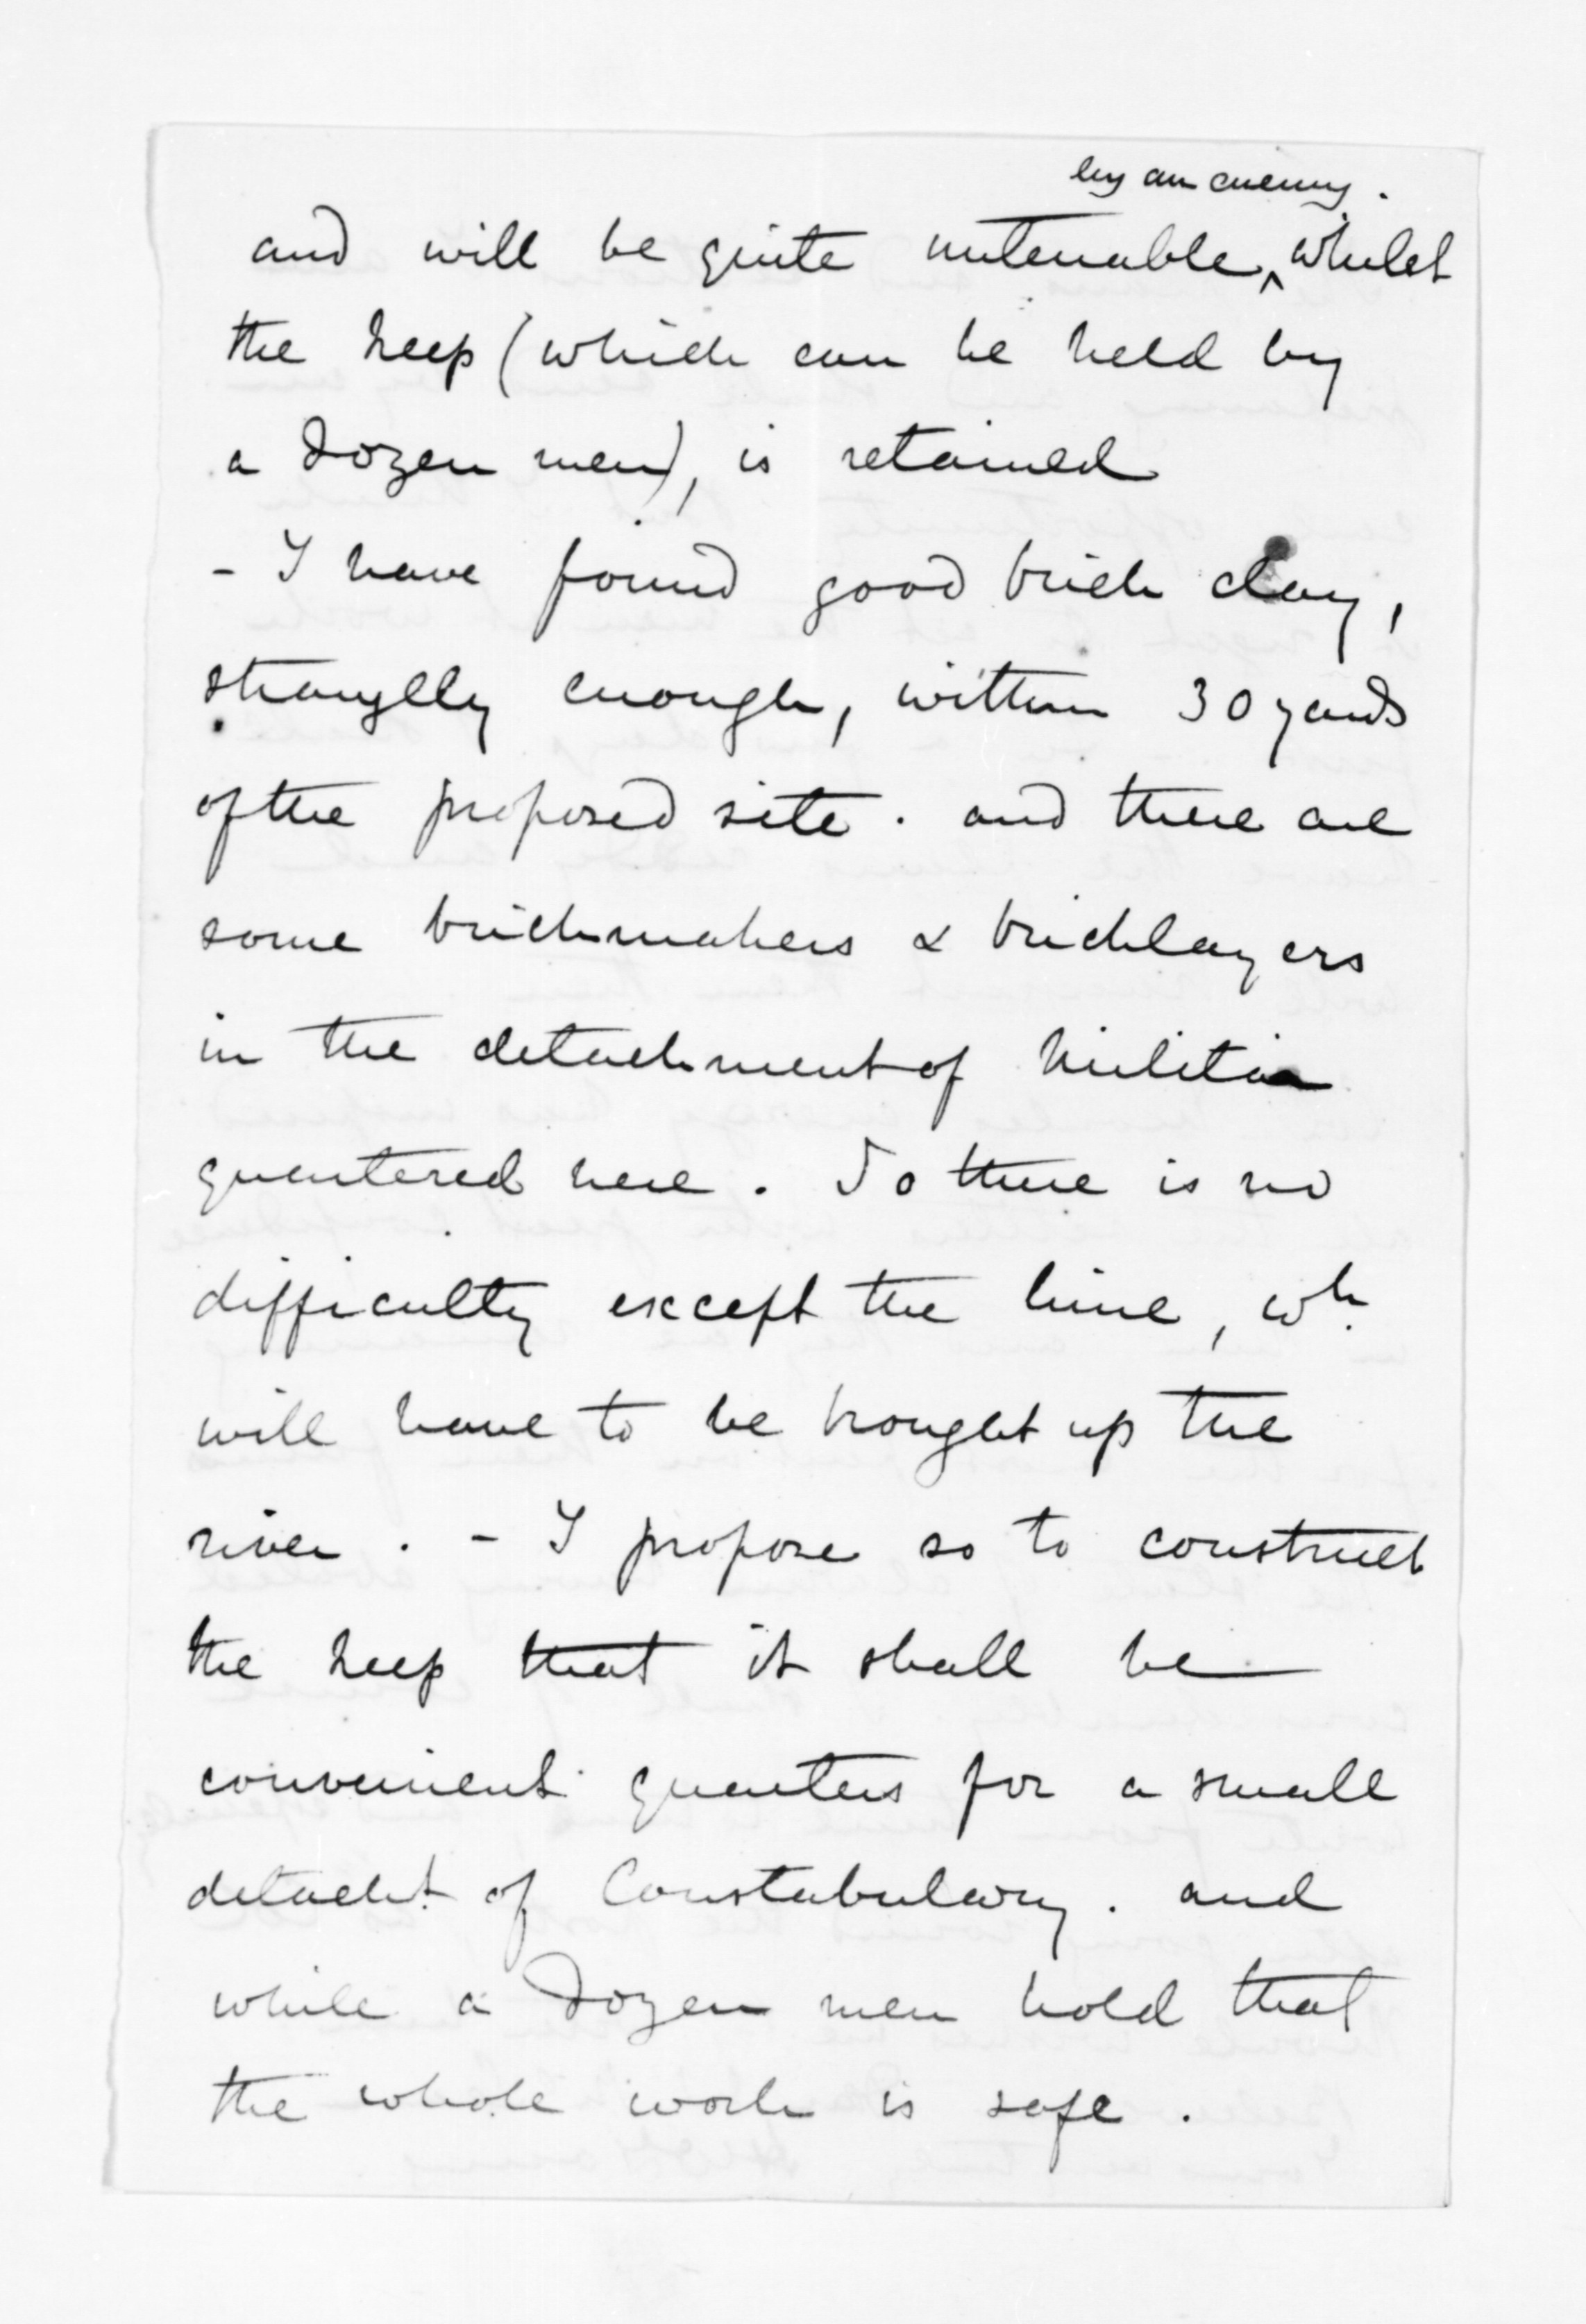 by an enemy.
and will be quite untenable, ^ whilst
the keep (which can be held by
a dozen men), is retained
- I have found good brick clay,
strangely enough, within 30 yards
of the proposed site. and there are
some brickmakers & bricklayers
in the detachment of Militia
quartered here. So there is no
difficulty except the lime, wh.
will have to be brought up the
river. - I propose so to construct
the keep that it shall be
convenient quarters for a small
detacht. of Constabulary. and
while a dozen men hold that
the whole work is safe.